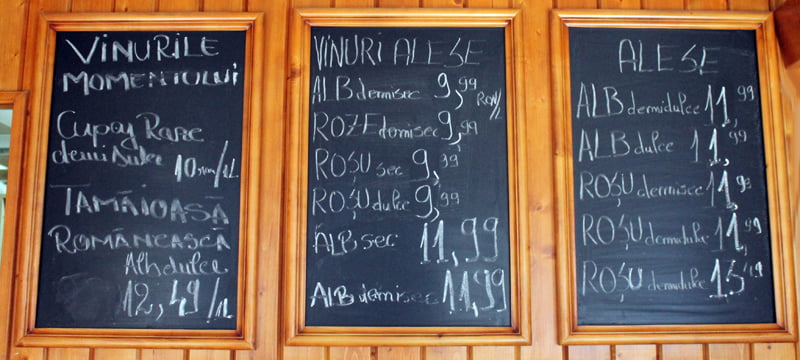 VINURILE
MOMENTULUI
Cupaj Rare
demi Dulce
10 RON/1L
TĂMÂIOASĂ
ROMÂNEASCĂ
Alb dulce
12,49/1L
VINURI ALESE
ALB demisec 9,99 RON/
ROZE demisec 9,99
ROȘU sec 9,99
ROȘU dulce 9,99
ALB sec 11,99
ALB demisec 11,99
ALESE
ALB demidulce 11,99
ALB dulce 11,99
ROȘU demisec 11,99
ROȘU demidulce 11,99
ROȘU demidulce